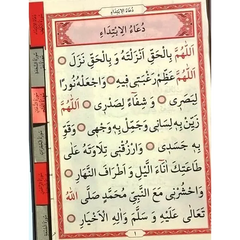 دُعَاءُ الِابْتِدَاءِ
دُعَاءُ الِابْتِدَاءِ
اَللّٰهُمَّ بِالْحَقِّ اَنْزَلْتَهُ وَ بِالْحَقِّ نَزَلَ
اَللّٰهُمَّ عَظِّمْ رَغْبَتِي فِيهِ وَاجْعَلْهُ نُورًا
لِبَصَرِي وَ شِفَاءً لِصَدْرِي اَللّٰهُمَّ
زَيِّنْ بِهِ لِسَانِي وَجَمِّلْ بِهِ وَجْهِي وَقَوِّ
بِهِ جَسَدِي وَارْزُقْنِي تِلَاوَتَهُ عَلَى
طَاعَتِكَ اٰنَاءَ الَّيْلِ وَ اَطْرَافَ النَّهَارِ
وَاحْشُرْنِي مَعَ النَّبِيِّ مُحَمَّدٍ صَلَّى اللهُ
تَعَالَى عَلَيْهِ وَ سَلَّمَ وَاٰلِهِ الْاَخْيَارِ
١